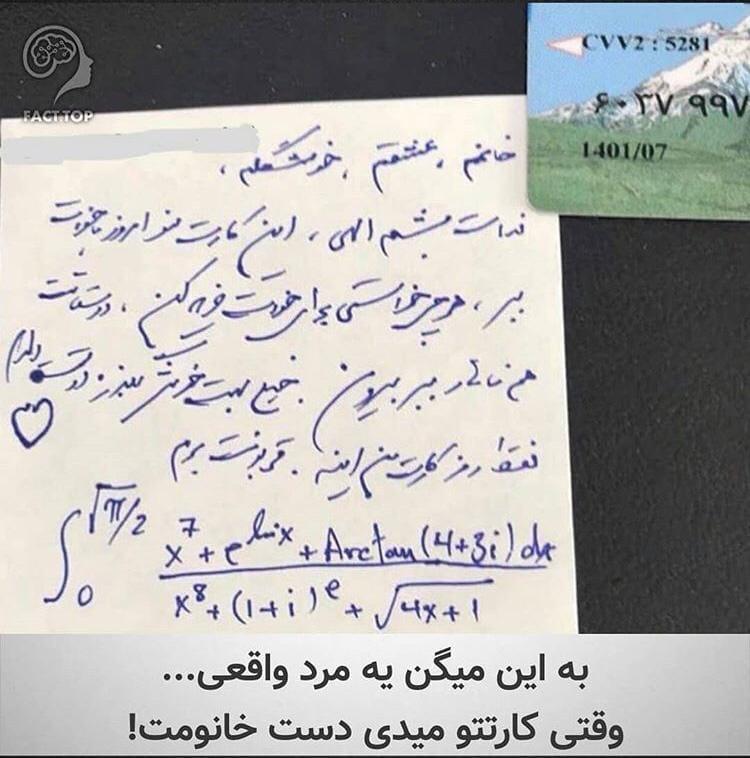 FACT TOP
CVV2 : 5281
۶۰۳۷ ۹۹۷
1401/07
خانمم ، عشقم ، خوشگلم ،
فدات بشم الهی ، این کارت منو امروز با خودت
ببر ، هر چی خواستی برای خودت خرید کن ، دوستات
هم ناهار ببر بیرون . خیلی بهت خوش بگذره دوست دارم
فقط رمز کارت من اینه . قربونت برم
∫ 0 √π/2 x^7 + e^lnx + Arctan(4+3i) dx
x^8 + (1+i)^e + √4x+1
به این میگن یه مرد واقعی...
وقتی کارتتو میدی دست خانومت!